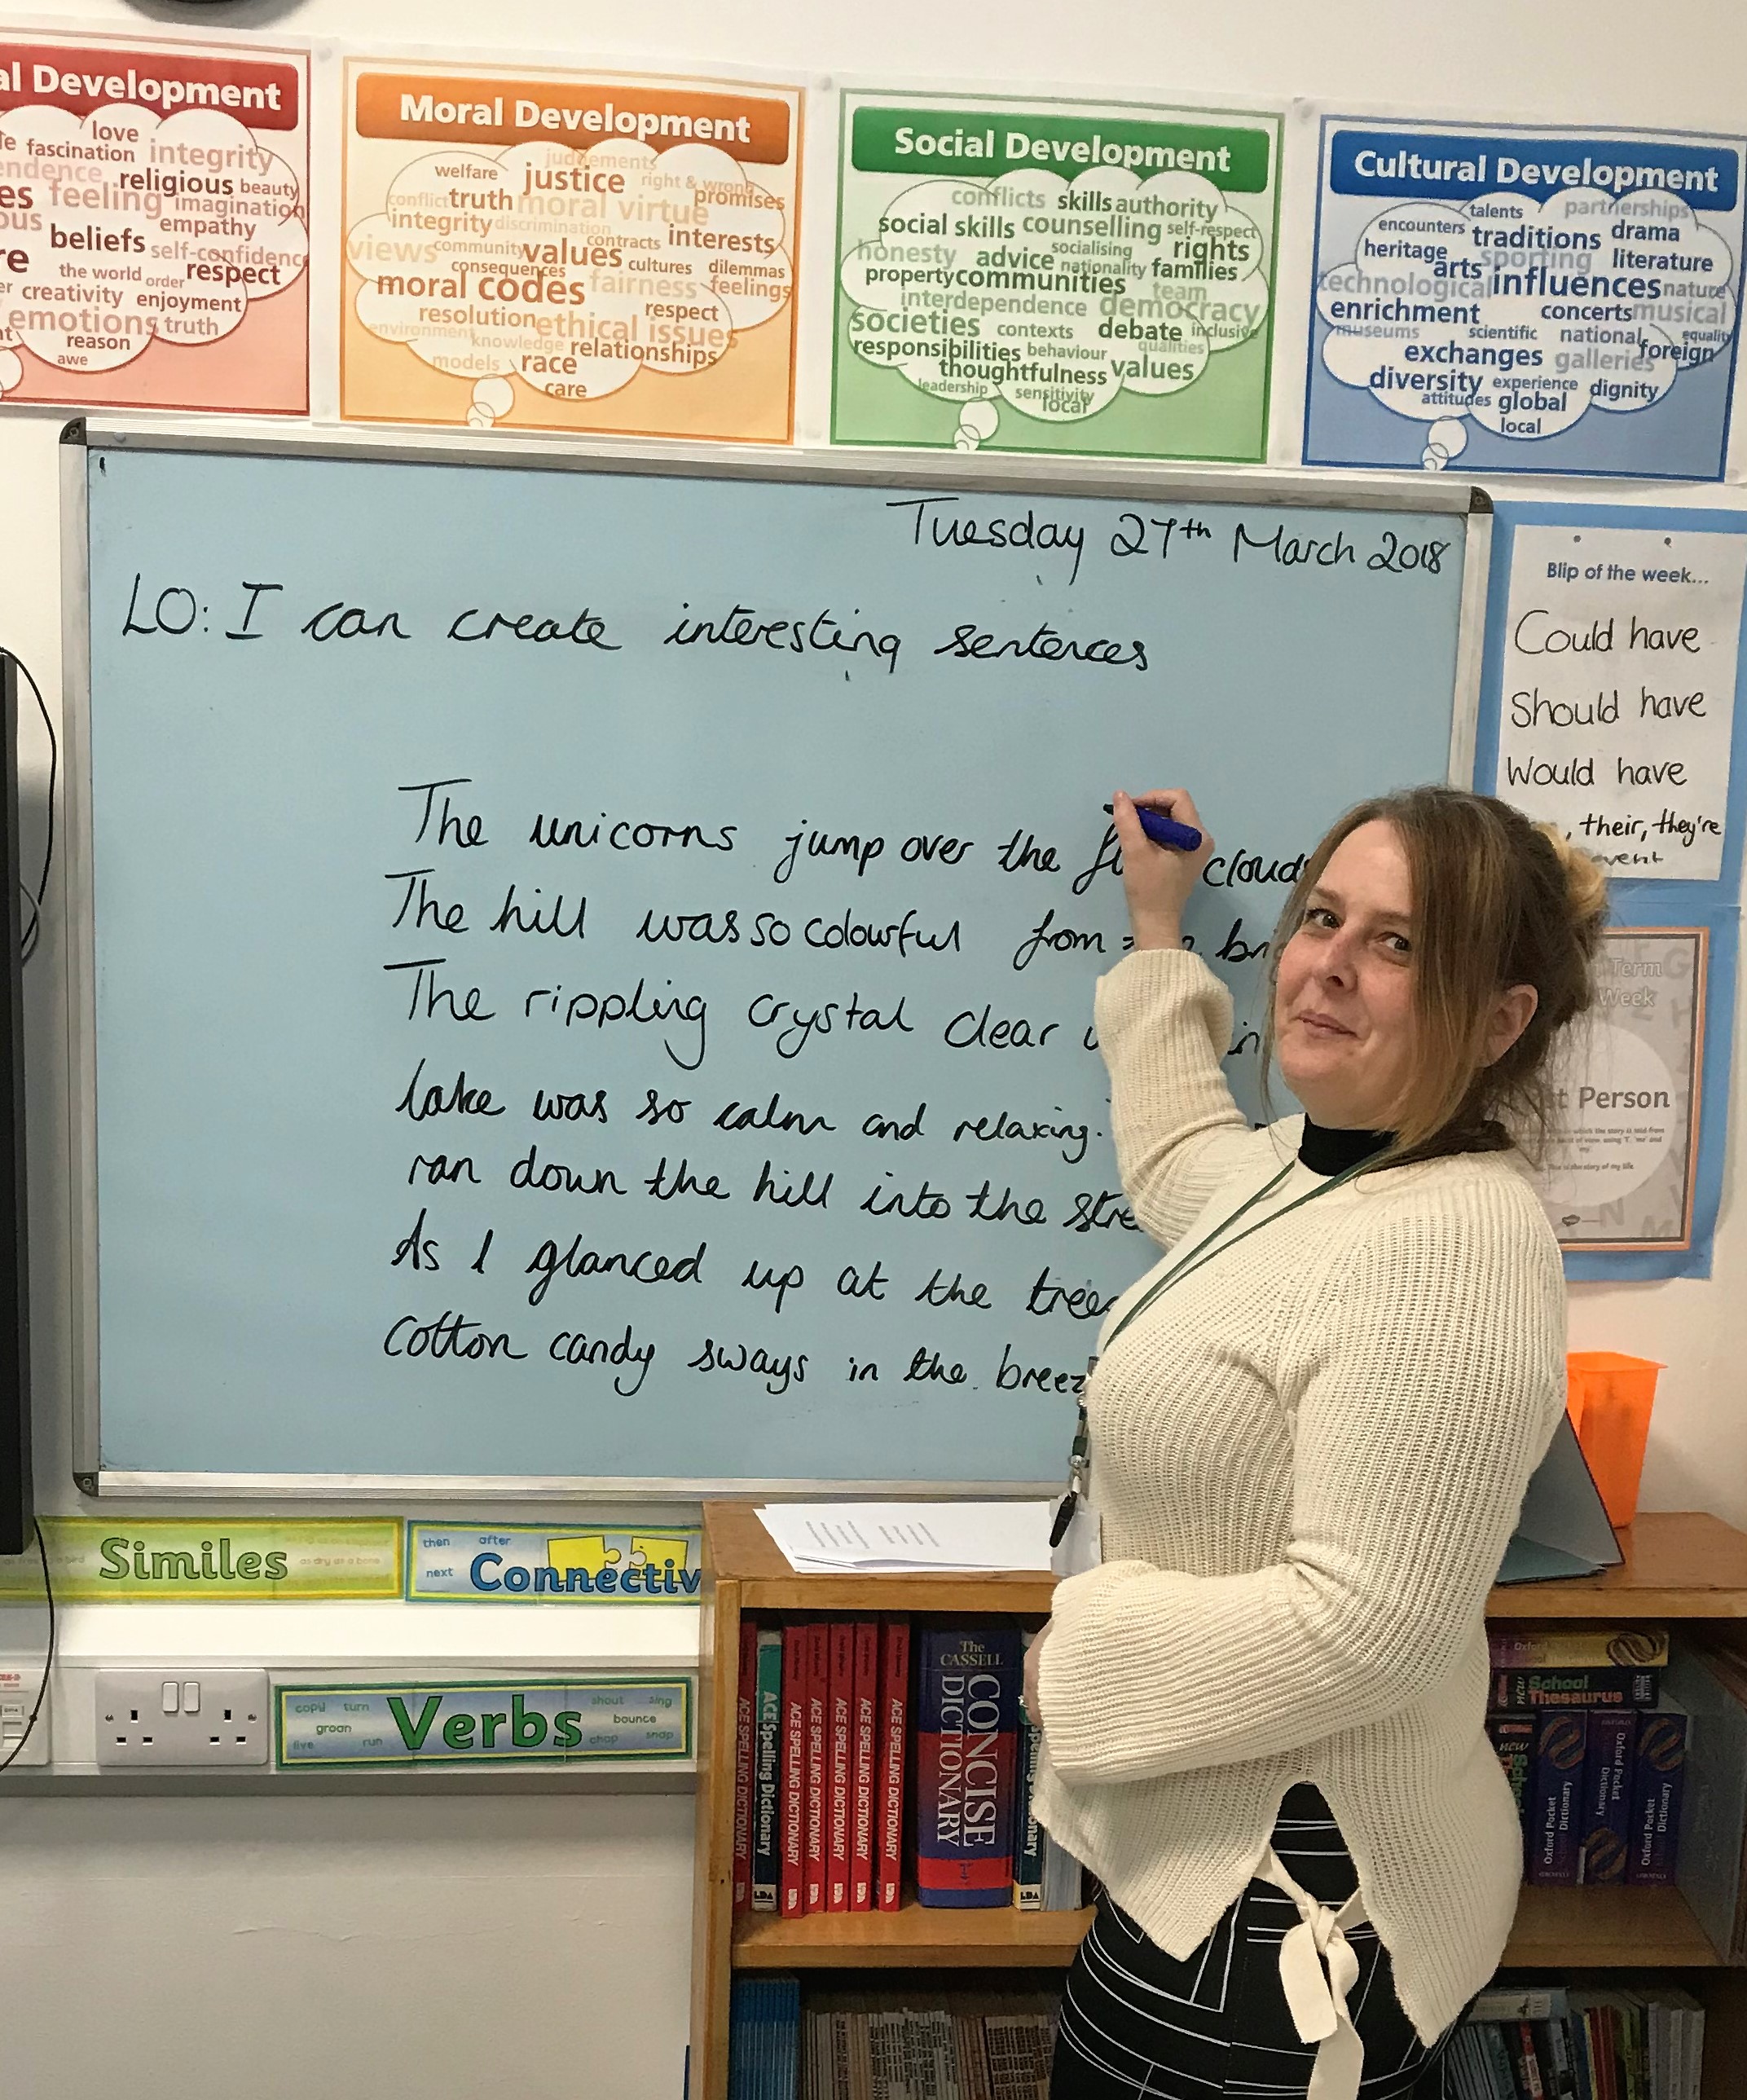 Development
love
fascination integrity
religious beauty
feeling imagination
empathy
beliefs self-confidence
the world order respect
creativity enjoyment
emotions truth
reason
awe
Moral Development
judgements
welfare justice right & wrong
conflict truth moral virtue promises
integrity discrimination
views community values contracts interests
consequences cultures dilemmas
moral codes fairness feelings
respect
resolution ethical issues
environment knowledge relationships
models race
care
Social Development
conflicts skills authority
social skills counselling self-respect
honesty advice socialising rights
nationality families
property communities team
interdependence democracy
societies contexts debate inclusive
responsibilities behaviour qualities
thoughtfulness values
leadership sensitivity
local
Cultural Development
talents partnerships
encounters traditions drama
heritage sporting literature
arts influences nature
technological
enrichment concerts musical
museums scientific national equality
exchanges galleries foreign
diversity experience dignity
attitudes global
local
Tuesday 27th March 2018
LO: I can create interesting sentences
The unicorns jump over the clouds
The hill was so colourful from
The rippling crystal clear in
lake was so calm and relaxing.
ran down the hill into the
As I glanced up at the trees
cotton candy sways in the
Blip of the week...
Could have
Should have
Would have
, their, they're
Term
Week
Person
Similes
as dry as a bone
then after
next
Verbs
copy turn shout sing
groan bounce
live run chop snap
The
CASSELL
CONCISE
DICTIONARY
ACE SPELLING DICTIONARY
ACE Spelling Dictionary
LDA
ACE SPELLING DICTIONARY
ACE SPELLING DICTIONARY
ACE SPELLING DICTIONARY
ACE SPELLING DICTIONARY
ACE SPELLING DICTIONARY
LDA
Oxford
new School
Thesaurus
new
Oxford Pocket
Dictionary
Oxford Pocket
Dictionary
Oxford Pocket
Dictionary